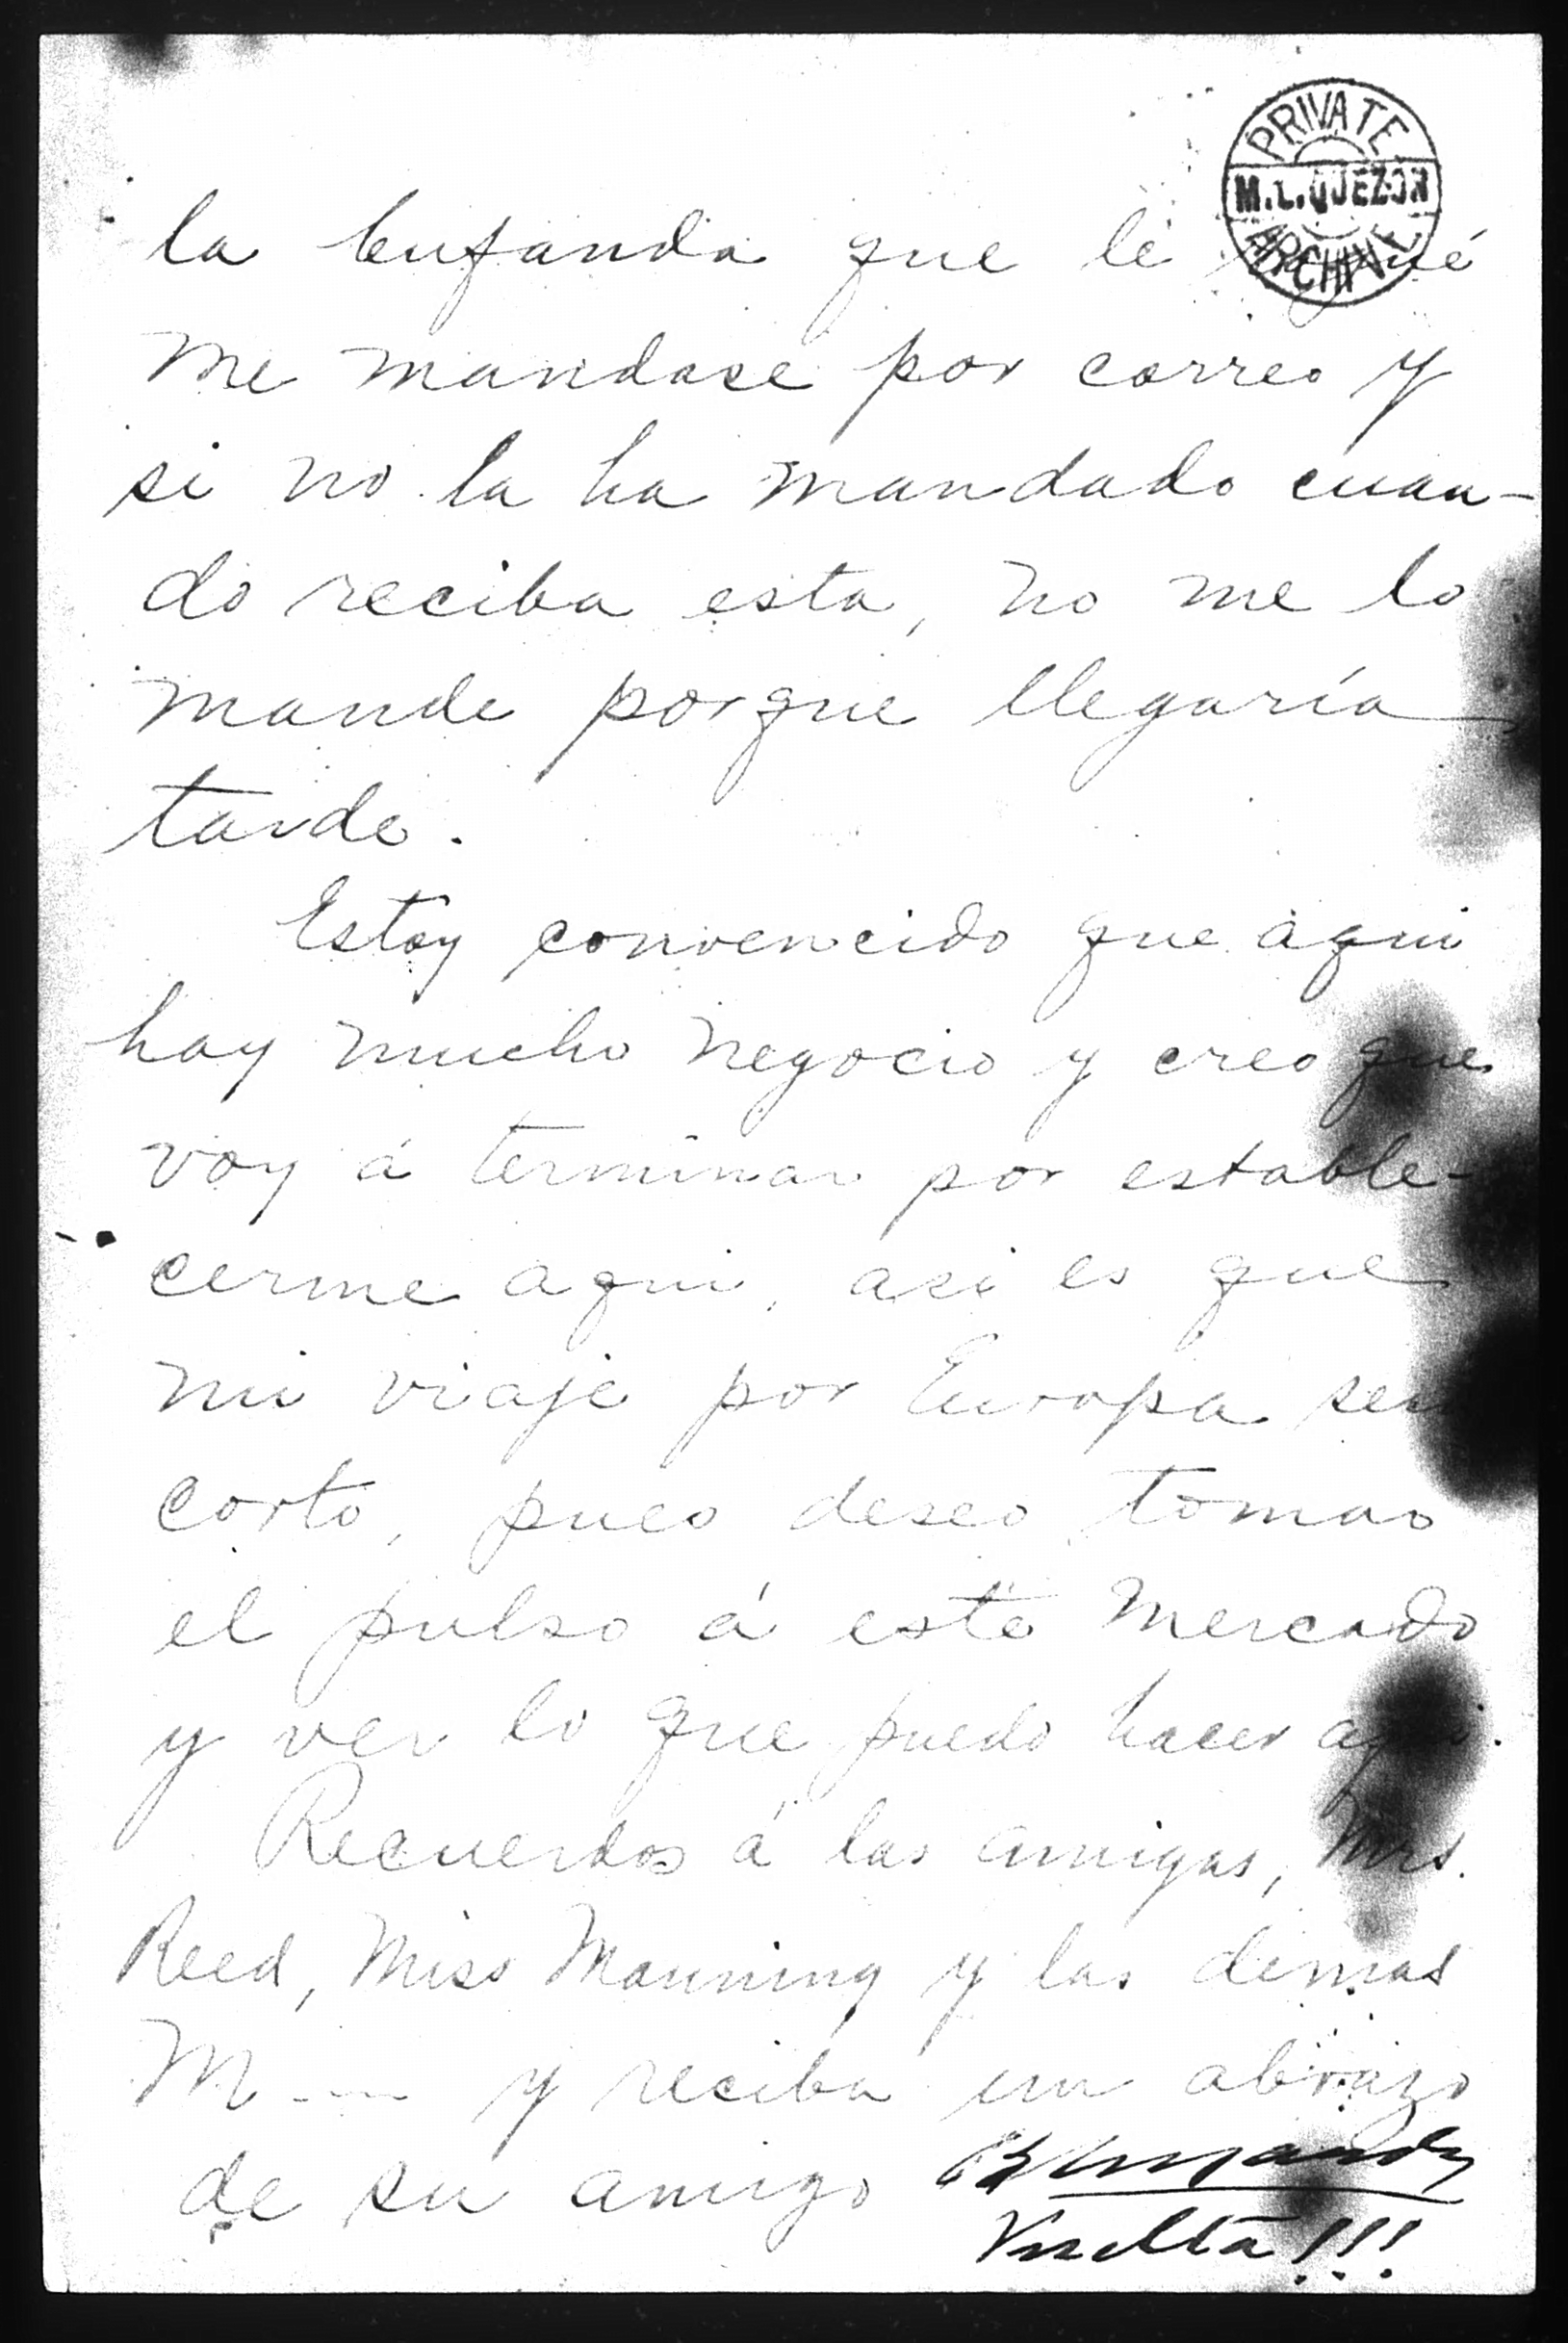 PRIVATE
M.L.QUEZON
ARCHIVE
la bufanda que le
me mandase por correo y
si no la ha mandado cuan-
do reciba esta, no me lo
mande porque llegaría
tarde.
Estoy convencido que aqui
hay mucho negocio y creo que
voy á terminar por estable-
cerme aqui, asi es que
mi viaje por Europa
corto, pues deseo tomar
el pulso á este mercado
y ver lo que puedo hacer aqui.
Recuerdos á las amigas, Mrs.
Reed, Miss Manning y las demas
M---- y reciba un abrazo
de su amigo
Vuelta!!!